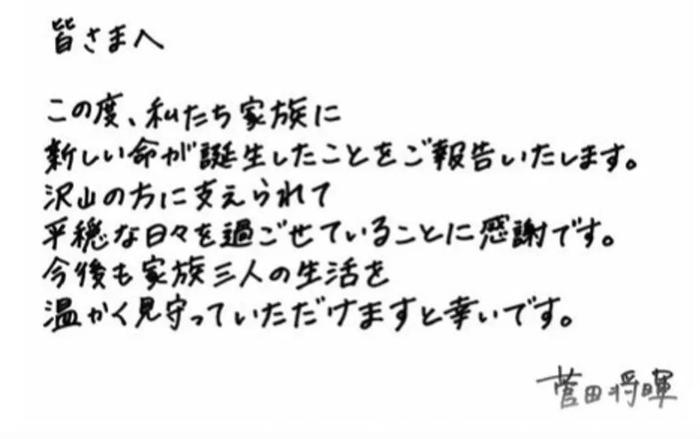 皆さまへ
この度、私たち家族に
新しい命が誕生したことをご報告いたします。
沢山の方に支えられて
平穏な日々を過ごせていることに感謝です。
今後も家族三人の生活を
温かく見守っていただけますと幸いです。
菅田将暉